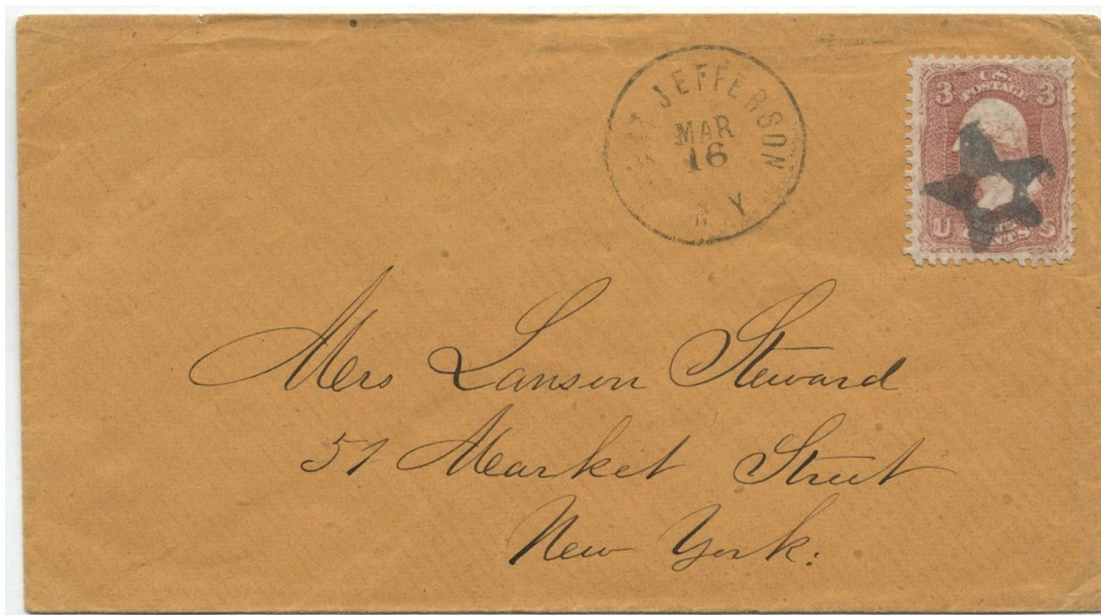 JEFFERSON
MAR
16
N Y
U.S.
POSTAGE
3 3
U S
Mrs Lanson Steward
51 Market Street
New York.